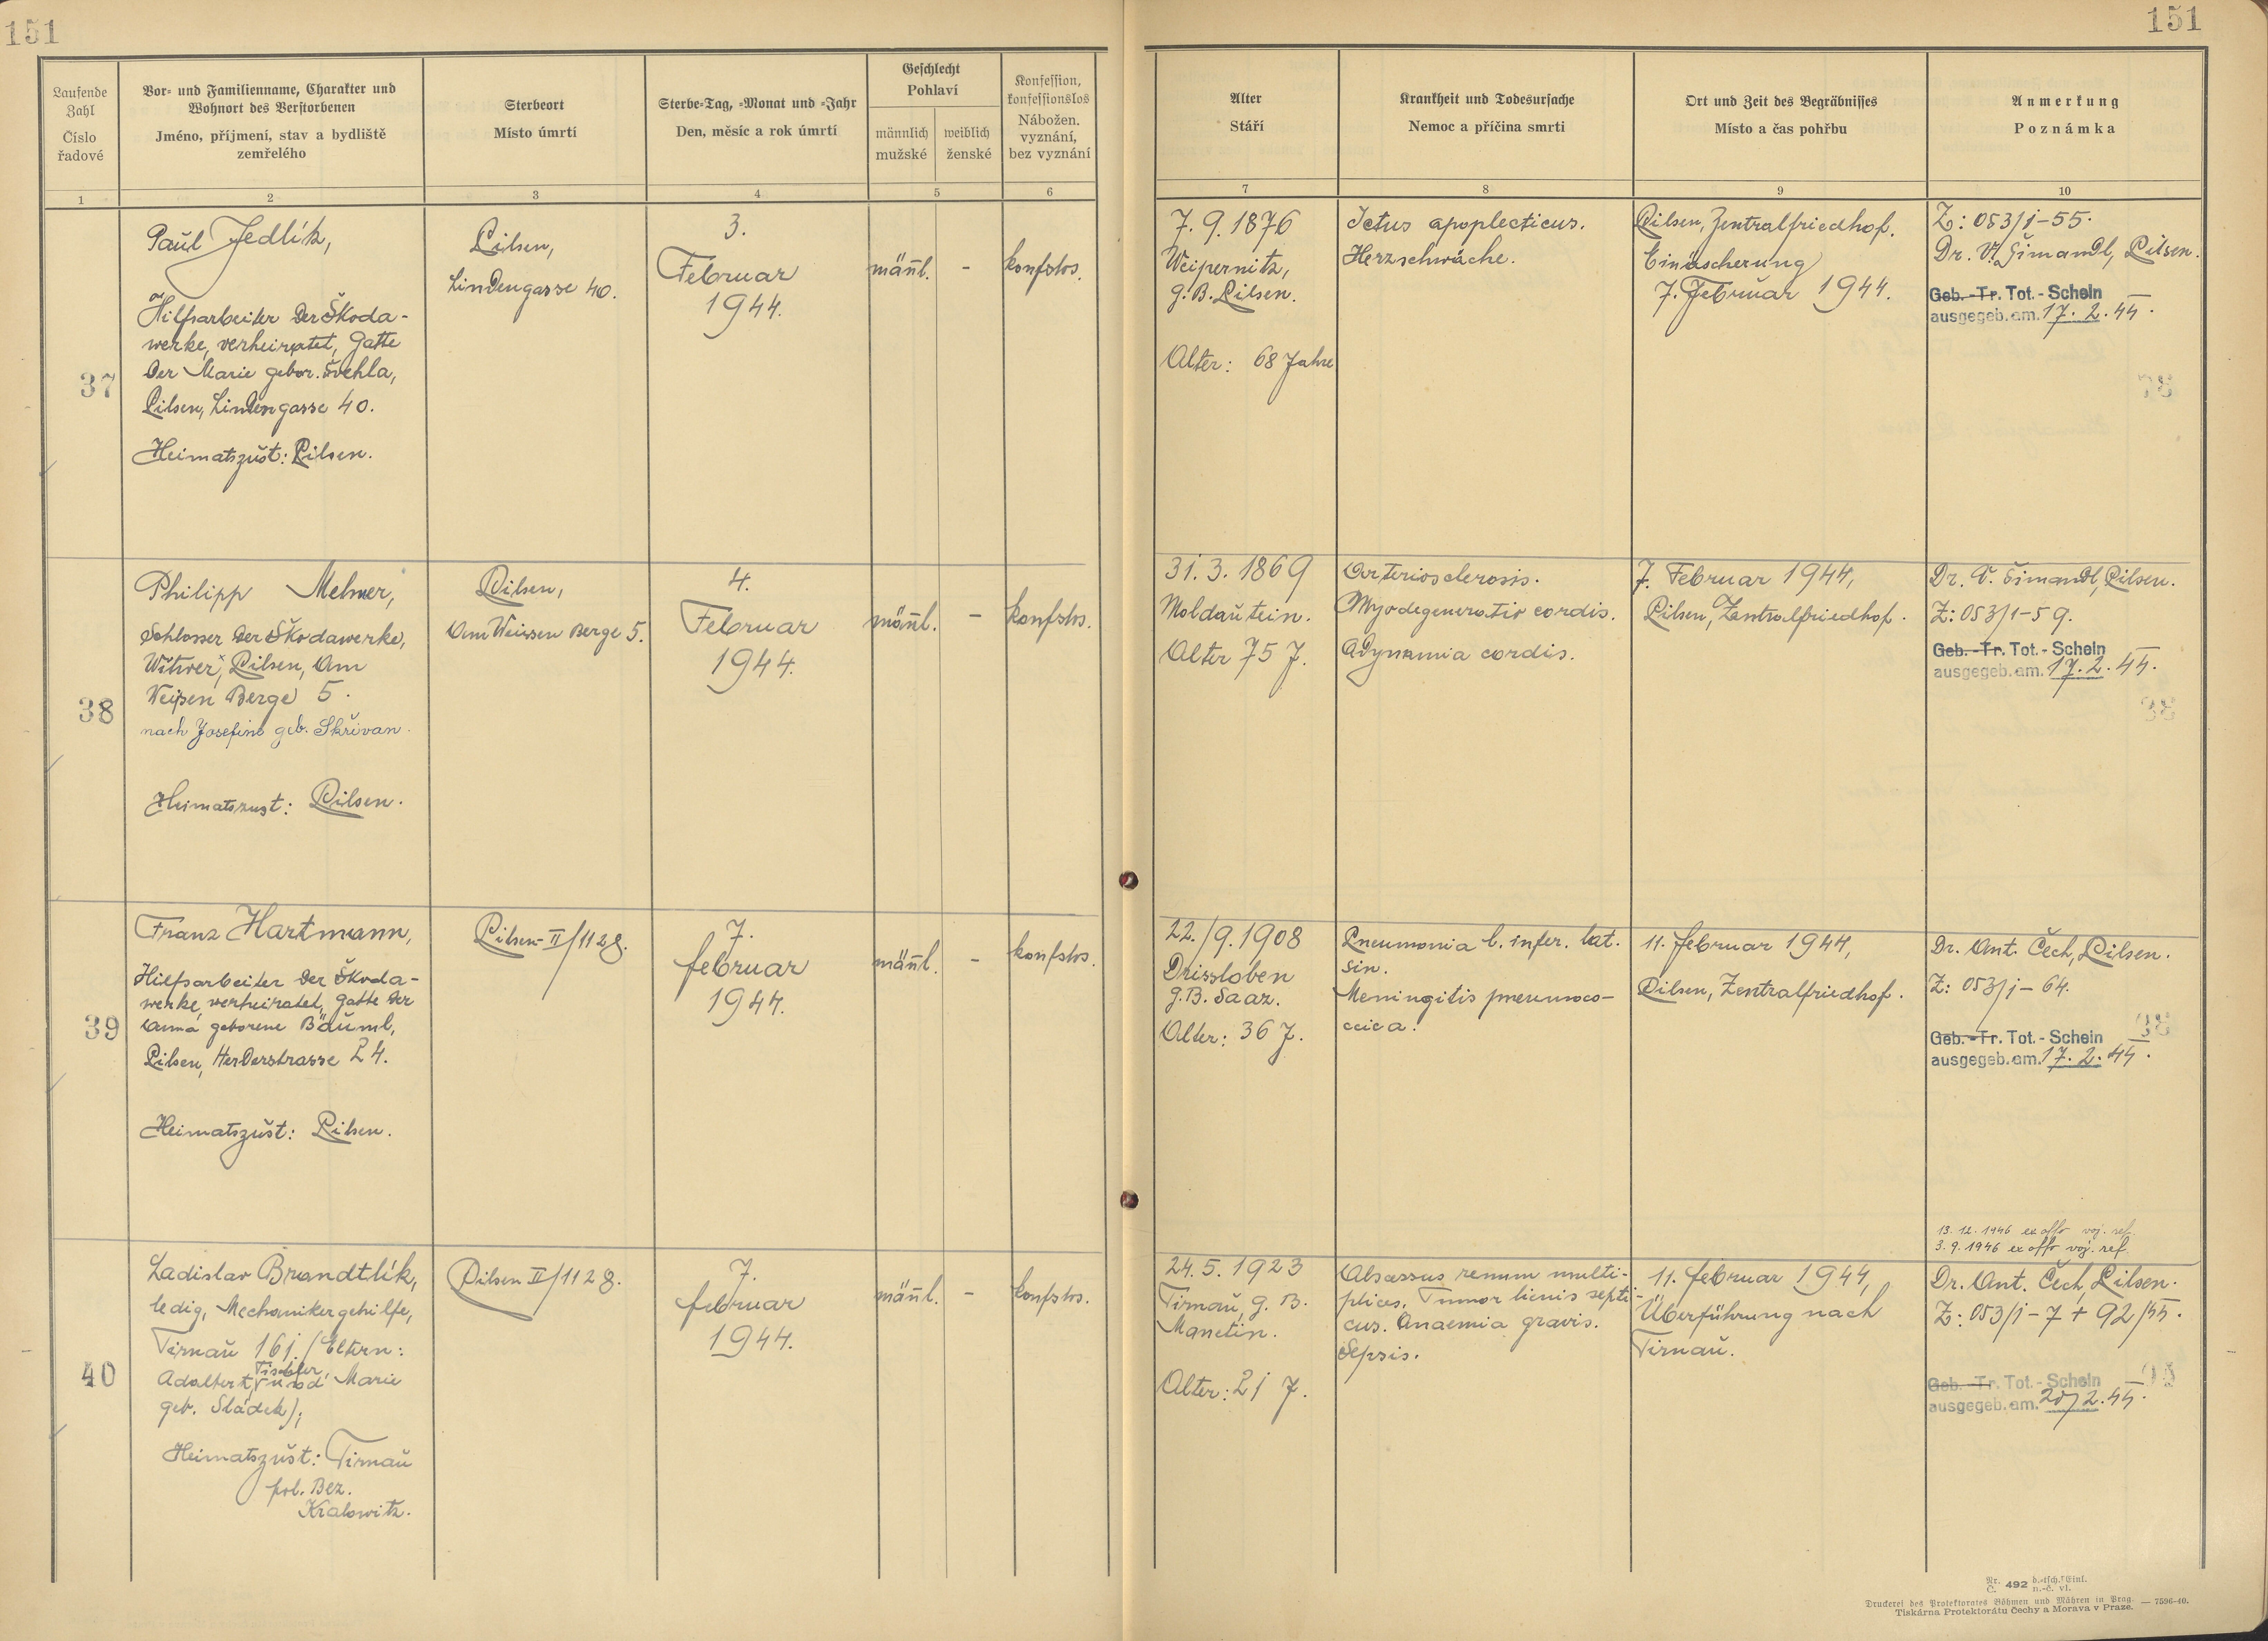 151
151
Laufende Zahl
Číslo řadové
Vor- und Familienname, Charakter und Wohnort des Verstorbenen
Jméno, příjmení, stav a bydliště zemřelého
Sterbeort
Místo úmrtí
Sterbe-Tag, -Monat und -Jahr
Den, měsíc a rok úmrtí
Geschlecht
Pohlaví
männlich
mužské
weiblich
ženské
Konfession, konfessionslos
Nábožen. vyznání, bez vyznání
Alter
Stáří
Krankheit und Todesursache
Nemoc a příčina smrti
Ort und Zeit des Begräbnisses
Místo a čas pohřbu
Anmerkung
Poznámka
1
2
3
4
5
6
7
8
9
10
37
Paul Jedlík,
Hilfsarbeiter der Škoda-
werke, verheiratet, Gatte
der Marie gebor. Švehla,
Pilsen, Lindengasse 40.
Heimatszust: Pilsen.
Pilsen,
Lindengasse 40.
3.
Februar
1944.
männl.
-
konfslos.
7. 9. 1876
Weipernitz,
G. B. Pilsen.
Alter: 68 Jahre
Ictus apoplecticus.
Herzschwäche.
Pilsen, Zentralfriedhof.
Einäscherung
7. Februar 1944.
Z: 053/1-55.
Dr. Vl. Šimandl, Pilsen.
Geb.-Tr. Tot.-Schein
ausgegeb. am. 17. 2. 44.
38
Philipp Melmer,
Schlosser der Škodawerke,
Witwer, Pilsen, Am
Weißen Berge 5.
nach Josefine geb. Skřivan.
Heimatszust: Pilsen.
Pilsen,
Am Weissen Berge 5.
4.
Februar
1944.
männl.
-
konfslos.
31. 3. 1869
Moldautein.
Alter 75 J.
Arteriosclerosis.
Myodegeneratio cordis.
Adynamia cordis.
7. Februar 1944,
Pilsen, Zentralfriedhof.
Dr. V. Šimandl, Pilsen.
Z: 053/1-59.
Geb.-Tr. Tot.-Schein
ausgegeb. am. 17. 2. 44.
39
Franz Hartmann,
Hilfsarbeiter der Škoda-
werke, verheiratet, Gatte der
Anna geborene Bäuml,
Pilsen, Herderstrasse 24.
Heimatszust: Pilsen.
Pilsen-II/1128.
7.
februar
1944.
männl.
-
konfslos.
22./9. 1908
Drissloben
G. B. Saaz.
Alter: 36 J.
Pneumonia l. infer. lat.
sin.
Meningitis pneumoco-
ccica.
11. februar 1944,
Pilsen, Zentralfriedhof.
Dr. Ant. Čech, Pilsen.
Z: 053/1-64.
Geb.-Tr. Tot.-Schein
ausgegeb. am. 17. 2. 44.
40
Ladislav Brandtlík,
ledig, Mechanikergehilfe,
Tirnau 161. /Eltern:
Tischler
Adalbert, und Marie
geb. Sládek);
Heimatszust: Tirnau
pol. Bez.
Kralowitz.
Pilsen II/1128.
7.
februar
1944.
männl.
-
konfslos.
24. 5. 1923
Tirnau, G. B.
Manetin.
Alter: 21 J.
Abscessus renum multi-
plices. Tumor lienis septi-
cus. Anaemia gravis.
Sepsis.
11. februar 1944,
Überführung nach
Tirnau.
13. 12. 1946 ex offo voj. ref.
3. 9. 1946 ex offo voj. ref.
Dr. Ant. Čech, Pilsen.
Z: 053/1-7 + 92/44.
Geb.-Tr. Tot.-Schein
ausgegeb. am. 2. 44.
Nr. Č. 492 d.-tsch. Einl. n.-č. vl.
Druckerei des Protektorates Böhmen und Mähren in Prag. — 7596-40.
Tiskárna Protektorátu Čechy a Morava v Praze.